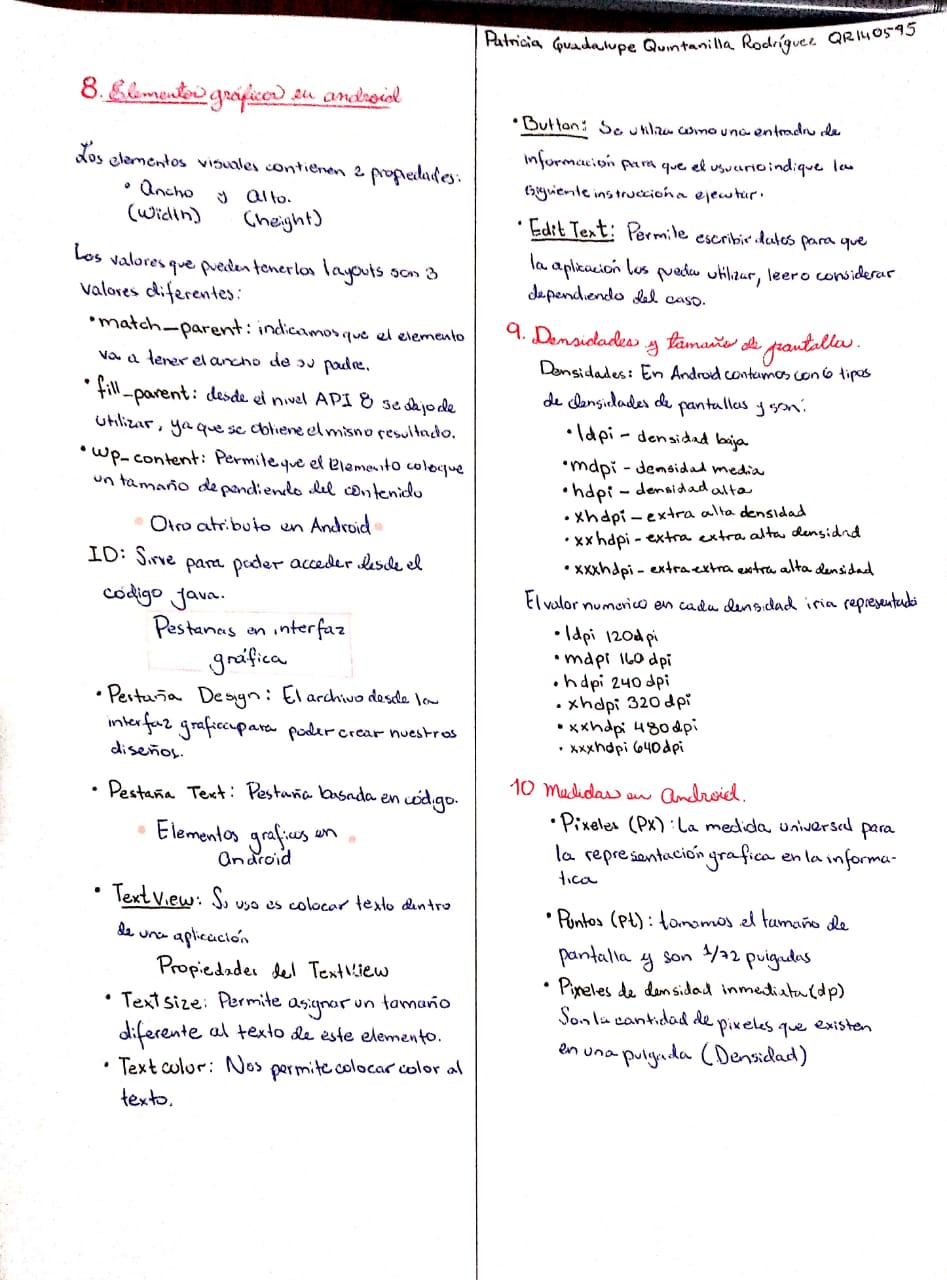 Patricia Guadalupe Quintanilla Rodríguez QR140595
8. Elementos gráficos en android
Los elementos visuales contienen 2 propiedades:
• Ancho y alto.
(Width) (height)
Los valores que pueden tener los layouts son 3
valores diferentes:
• match_parent: indicamos que el elemento
va a tener el ancho de su padre.
• fill_parent: desde el nivel API 8 se dejo de
utilizar, ya que se obtiene el mismo resultado.
• wp_content: Permite que el Elemento coloque
un tamaño dependiendo del contenido
• Otro atributo en Android •
ID: Sirve para poder acceder desde el
código Java.
Pestanas en interfaz
gráfica
• Pestaña Design: El archivo desde la
interfaz grafica para poder crear nuestros
diseños.
• Pestaña Text: Pestaña basada en código.
• Elementos graficos en •
Android
• TextView: Su uso es colocar texto dentro
de una aplicación
Propiedades del TextView
• Textsize: Permite asignar un tamaño
diferente al texto de este elemento.
• Text color: Nos permite colocar color al
texto.
• Button: Se utiliza como una entrada de
información para que el usuario indique la
siguiente instrucción a ejecutar.
• Edit Text: Permite escribir datos para que
la aplicación los pueda utilizar, leer o considerar
dependiendo del caso.
9. Densidades y tamaño de pantalla.
Densidades: En Android contamos con 6 tipos
de densidades de pantallas y son:
• ldpi - densidad baja
• mdpi - densidad media
• hdpi - densidad alta
• xhdpi - extra alta densidad
• xxhdpi - extra extra alta densidad
• xxxhdpi - extra extra extra alta densidad
El valor numerico en cada densidad iria representado
• ldpi 120dpi
• mdpi 160 dpi
• hdpi 240 dpi
• xhdpi 320 dpi
• xxhdpi 480dpi
• xxxhdpi 640dpi
10 Medidas en Android.
• Pixeles (Px): La medida universal para
la representación grafica en la informa-
tica
• Puntos (Pt): tomamos el tamaño de
pantalla y son 1/72 pulgadas
• Pixeles de densidad inmediata (dp)
Son la cantidad de pixeles que existen
en una pulgada (Densidad)